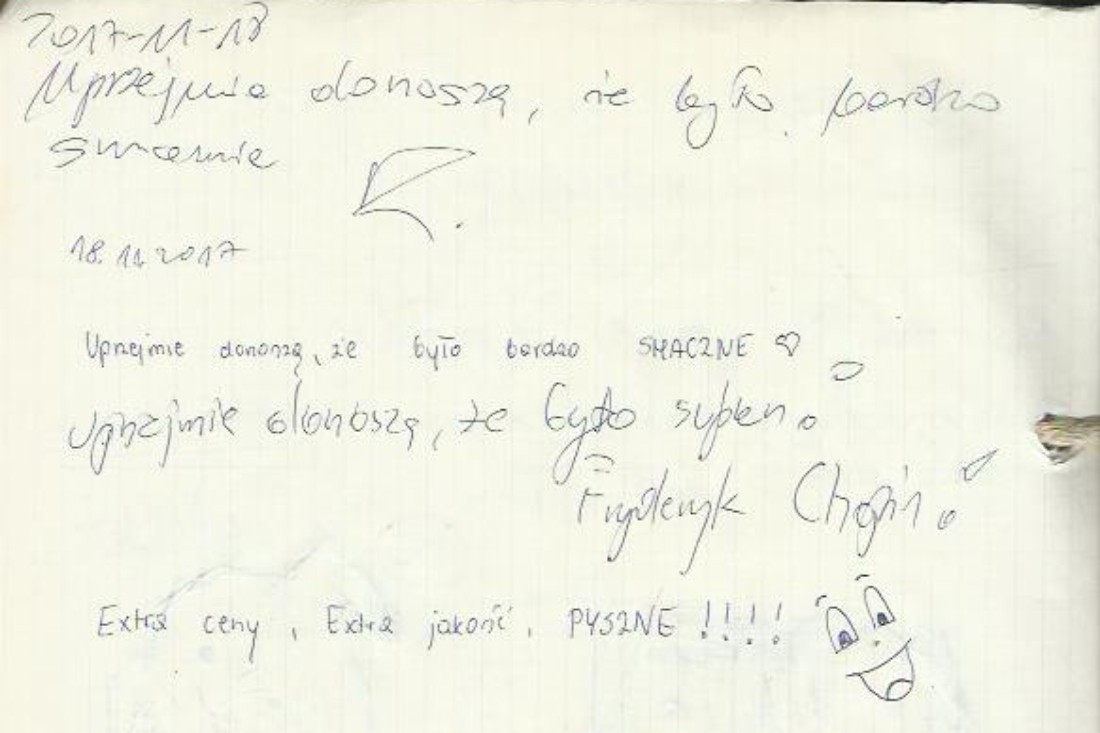 2017-11-18
Uprzejmie donoszę, że było bardzo
smacznie
18.11.2017
Uprzejmie donoszę, że było bardzo SMACZNE ♡
Uprzejmie donoszę, że było super.
Fryderyk Chopin.
Extra ceny, Extra jakość, PYSZNE !!!!